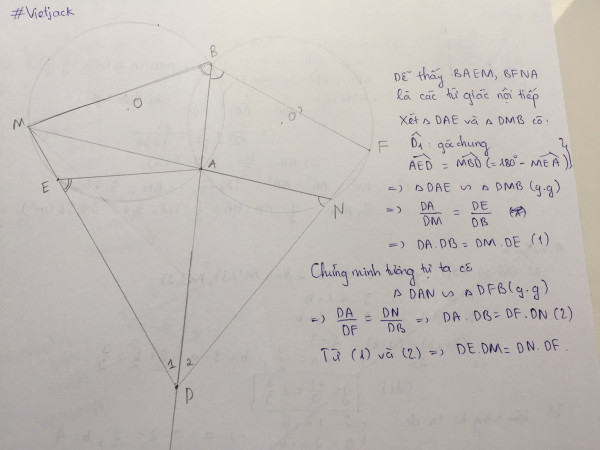 #Vietjack
B
O
O'
M
F
E
A
N
1 2
D
Dễ thấy BAEM, BFNA
là các tứ giác nội tiếp
Xét ΔDAE và ΔDMB có:
D̂₁ : góc chung
AED = MBD (=180° - MEA)
=> ΔDAE ∽ ΔDMB (g.g)
=> DA/DM = DE/DB
=> DA.DB = DM.DE (1)
Chứng minh tương tự ta có
ΔDAN ∽ ΔDFB (g.g)
=> DA/DF = DN/DB => DA.DB = DF.DN (2)
Từ (1) và (2) => DE.DM = DN.DF.